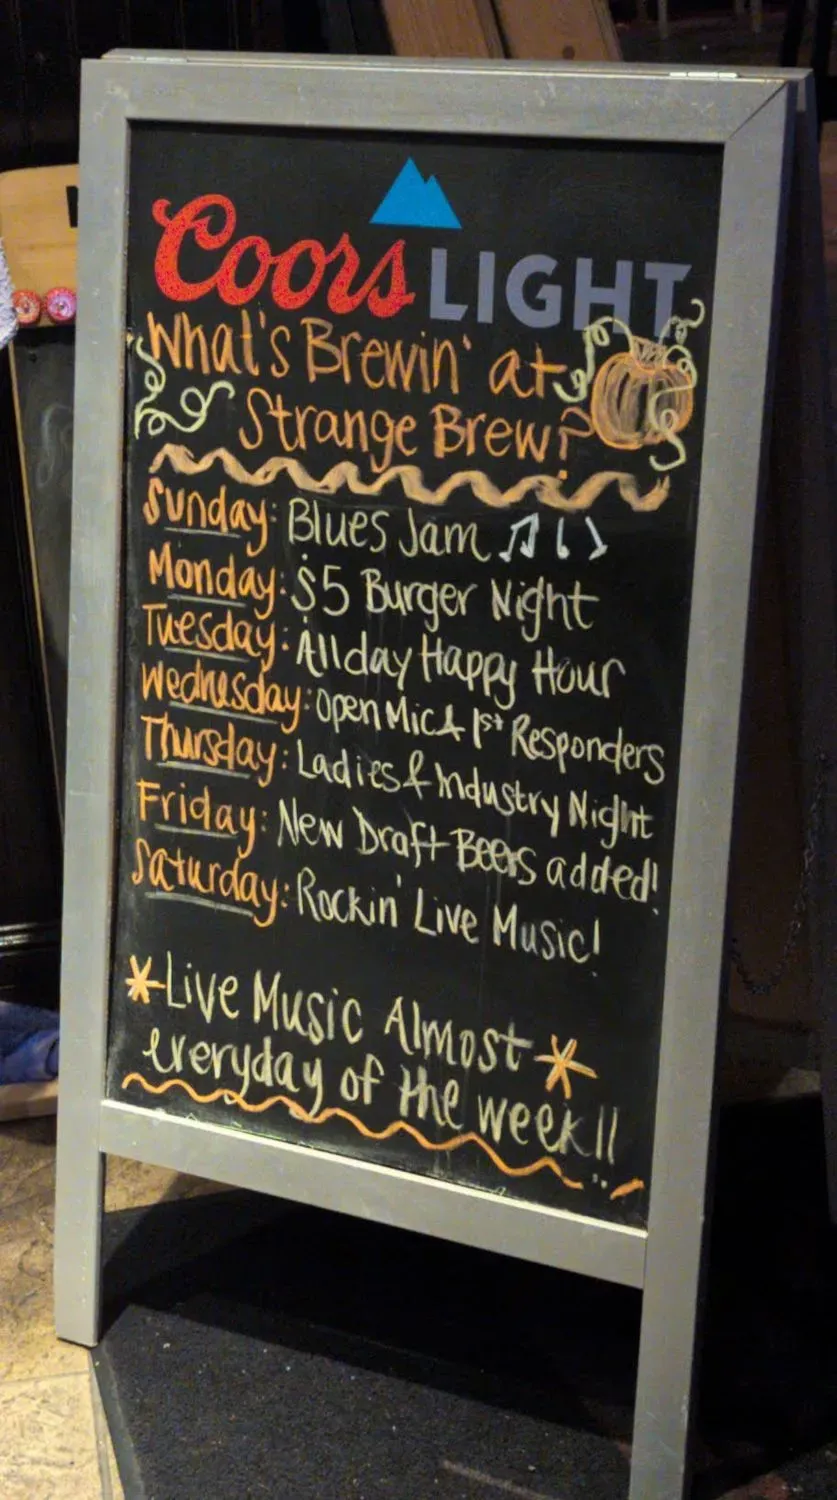 Coors LIGHT
What's Brewin' at
Strange Brew?
Sunday: Blues Jam
Monday: $5 Burger Night
Tuesday: All day Happy Hour
Wednesday: Open Mic & 1st Responders
Thursday: Ladies & Industry Night
Friday: New Draft Beers added!
Saturday: Rockin' Live Music!
*Live Music Almost*
everyday of the week!!